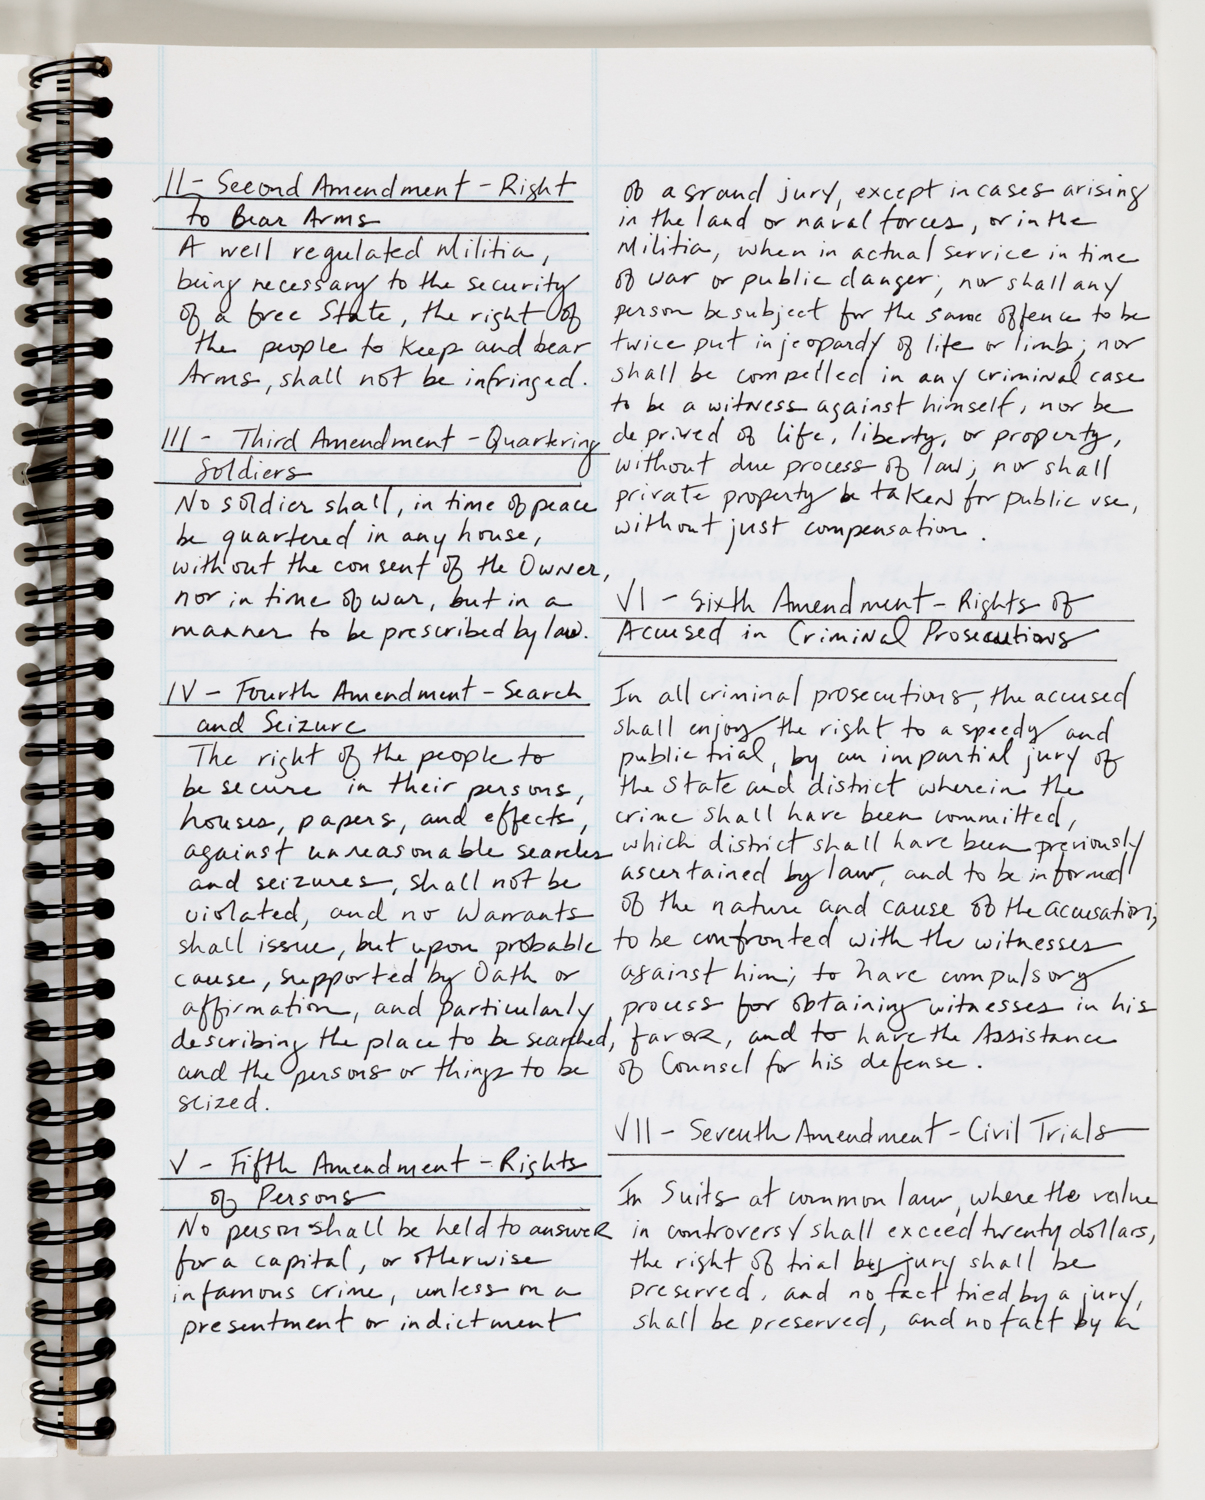 II - Second Amendment - Right
to Bear Arms
A well regulated Militia,
being necessary to the security
of a free State, the right of
the people to keep and bear
Arms, shall not be infringed.
III - Third Amendment - Quartering
Soldiers
No soldier shall, in time of peace
be quartered in any house,
without the consent of the Owner,
nor in time of war, but in a
manner to be prescribed by law.
IV - Fourth Amendment - Search
and Seizure
The right of the people to
be secure in their persons,
houses, papers, and effects,
against unreasonable searches
and seizures, shall not be
violated, and no Warrants
shall issue, but upon probable
cause, supported by Oath or
affirmation, and particularly
describing the place to be searched,
and the persons or things to be
seized.
V - Fifth Amendment - Rights
of Persons
No person shall be held to answer
for a capital, or otherwise
infamous crime, unless on a
presentment or indictment
of a grand jury, except in cases arising
in the land or naval forces, or in the
Militia, when in actual service in time
of war or public danger; nor shall any
person be subject for the same offence to be
twice put in jeopardy of life or limb; nor
shall be compelled in any criminal case
to be a witness against himself, nor be
deprived of life, liberty, or property,
without due process of law; nor shall
private property be taken for public use,
without just compensation.
VI - Sixth Amendment - Rights of
Accused in Criminal Prosecutions
In all criminal prosecutions, the accused
shall enjoy the right to a speedy and
public trial, by an impartial jury of
the State and district wherein the
crime shall have been committed,
which district shall have been previously
ascertained by law, and to be informed
of the nature and cause of the accusation;
to be confronted with the witnesses
against him; to have compulsory
process for obtaining witnesses in his
favor, and to have the Assistance
of Counsel for his defense.
VII - Seventh Amendment - Civil Trials
In Suits at common law, where the value
in controversy shall exceed twenty dollars,
the right of trial by jury shall be
preserved, and no fact tried by a jury,
shall be preserved, and no fact by a